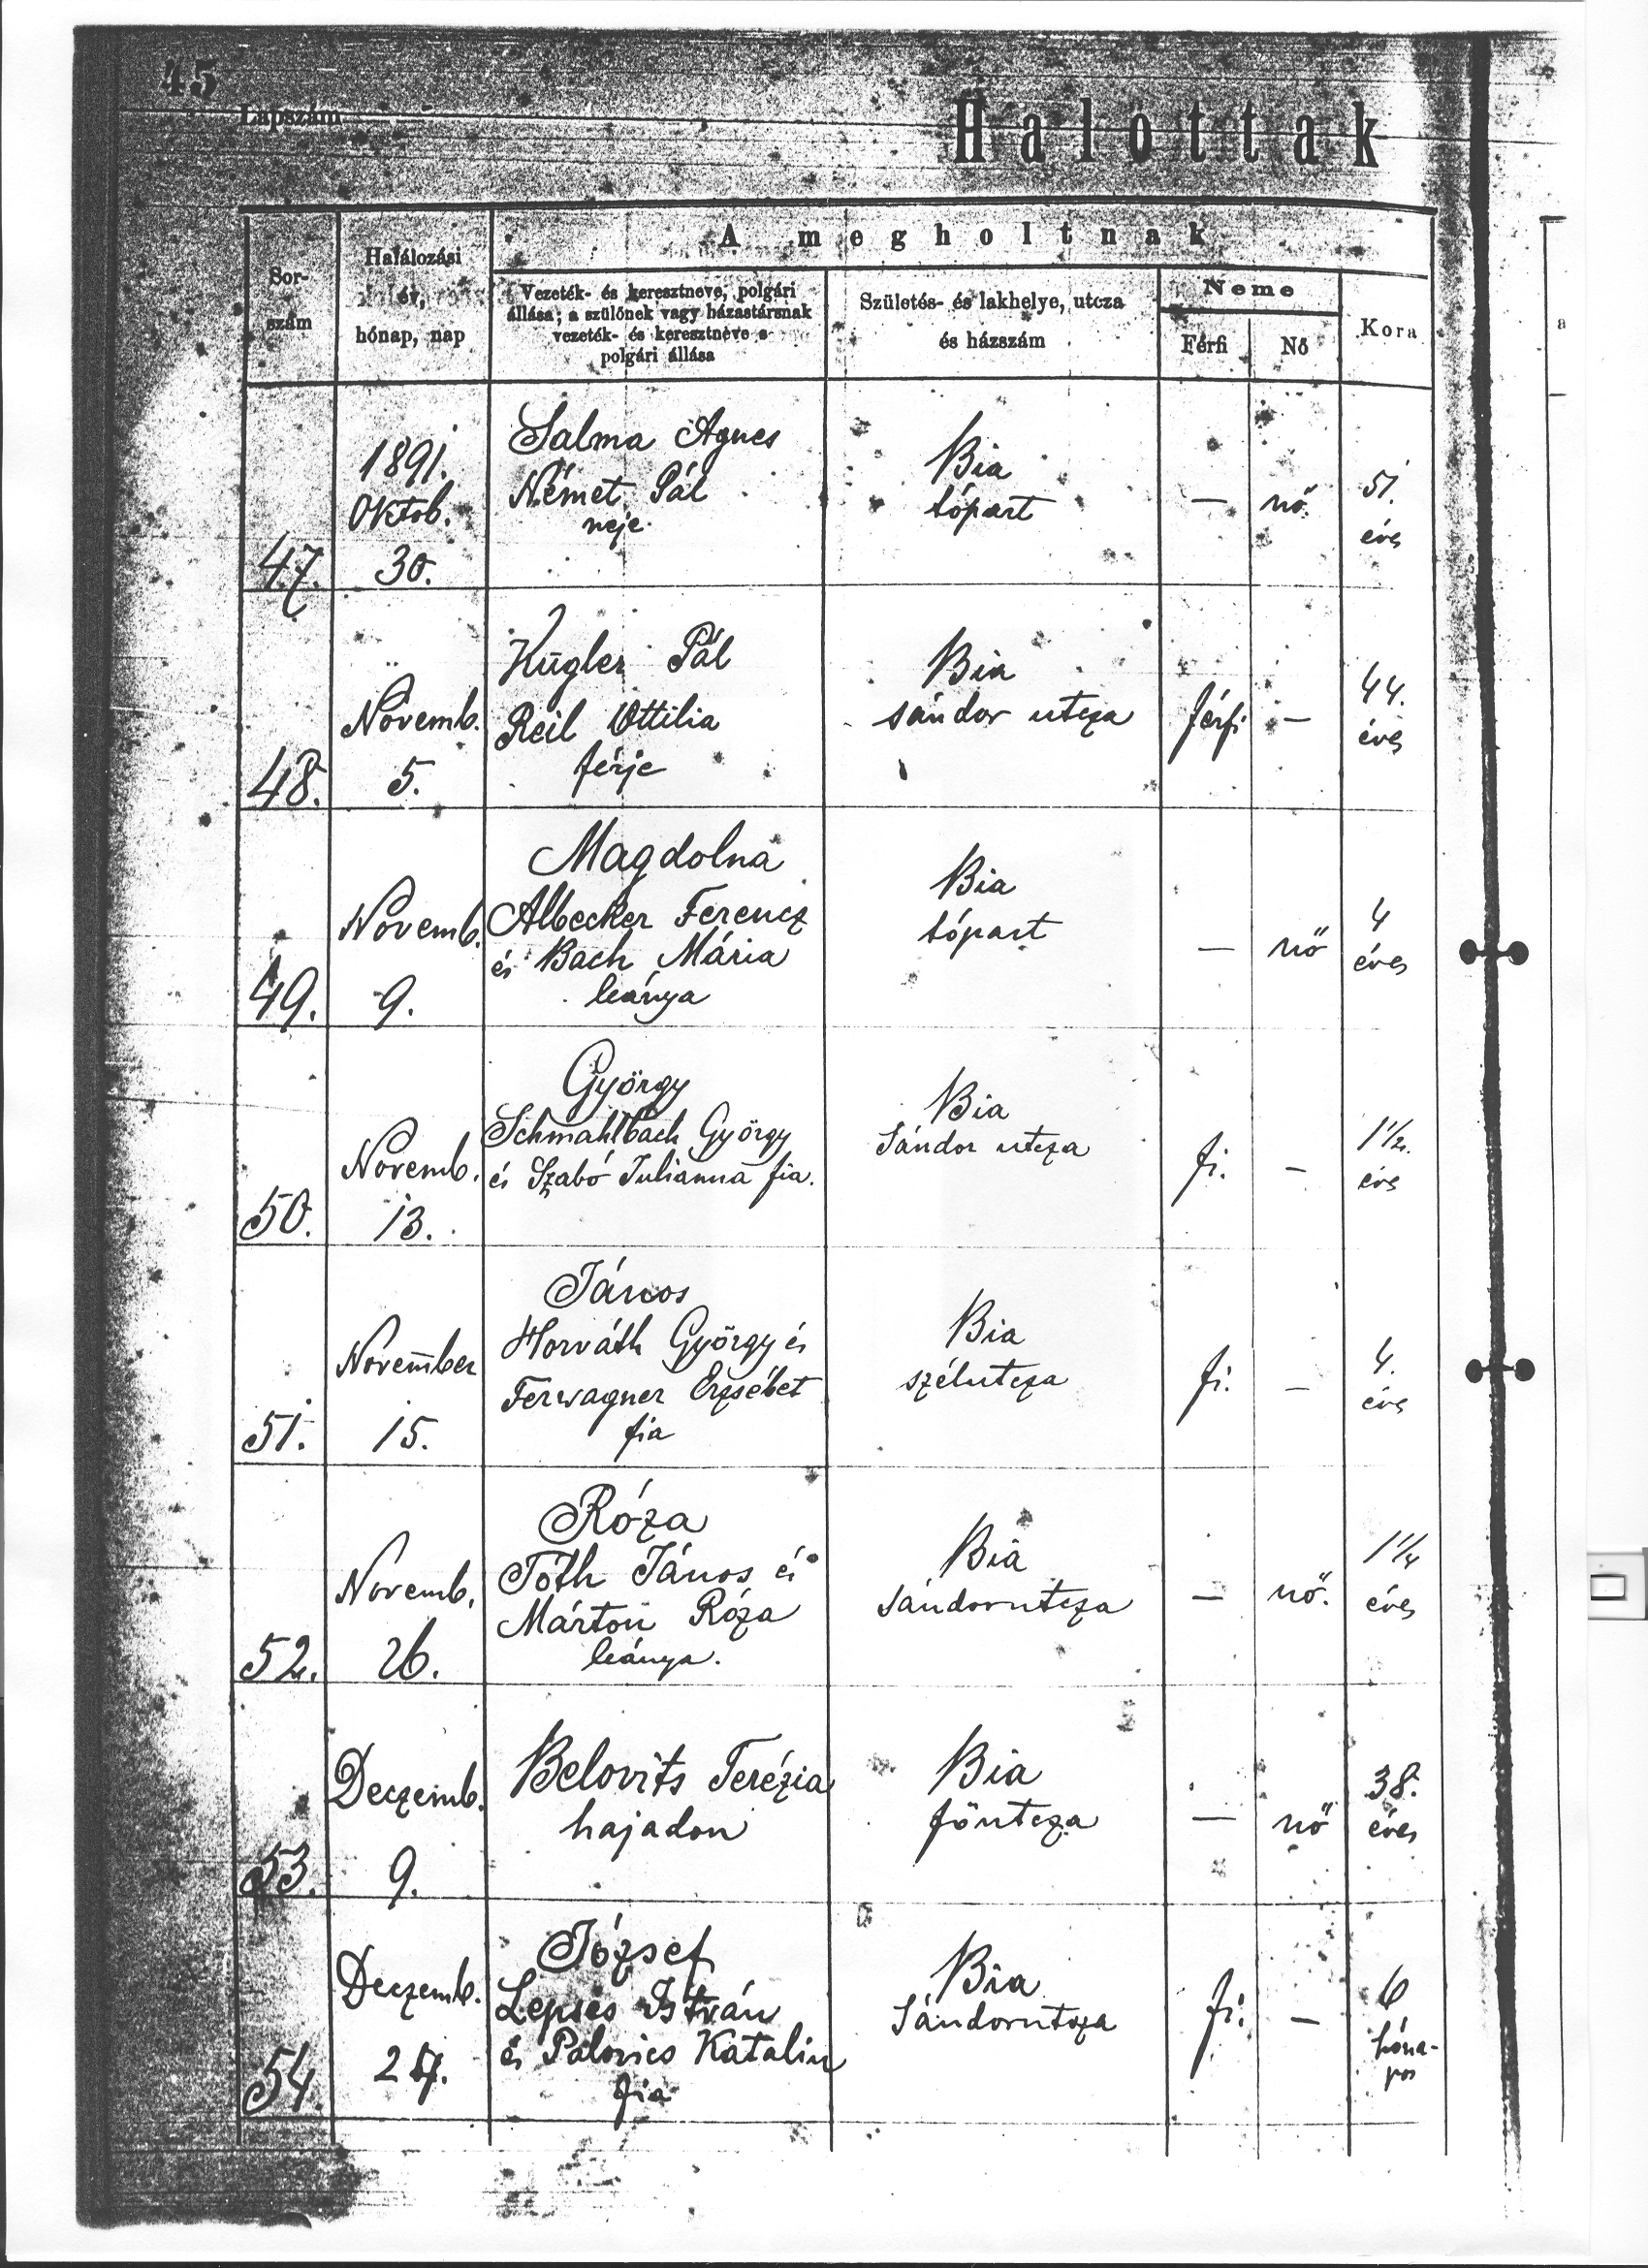 45
Lapszám
Halottak
A megholtnak
Sor-
szám
Halálozási
év,
hónap, nap
Vezeték- és keresztneve, polgári
állása; a szülőnek vagy házastársnak
vezeték- és keresztneve s
polgári állása
Születés- és lakhelye, utcza
és házszám
Neme
Férfi
Nő
Kora
47.
1891.
Oktob.
30.
Salma Agnes
Német Pál
neje
Bia
tópart
—
nő
51.
éves
48.
Novemb.
5.
Kugler Pál
Reil Ottilia
férje
Bia
sándor utcza
férfi
—
44.
éves
49.
Novemb.
9.
Magdolna
Albecker Ferencz
és Bach Mária
leánya
Bia
tópart
—
nő
4
éves
50.
Novemb.
13.
György
Schmahlbach György
és Szabó Julianna fia.
Bia
Sándor utcza
fi.
—
1 1/2.
éves
51.
November
15.
János
Horváth György és
Ferwagner Erzsébet
fia
Bia
szélutcza
fi.
—
4.
éves
52.
Novemb.
26.
Róza
Tóth János és
Márton Róza
leánya.
Bia
Sándorutcza
—
nő.
1 1/4
éves
53.
Deczemb.
9.
Belovits Terézia
hajadon
Bia
főutcza
—
nő
38.
éves
54.
Deczemb.
József
István
és Palovics Katalin
fia
Bia
Sándorutcza
fi.
—
6
hóna-
pos